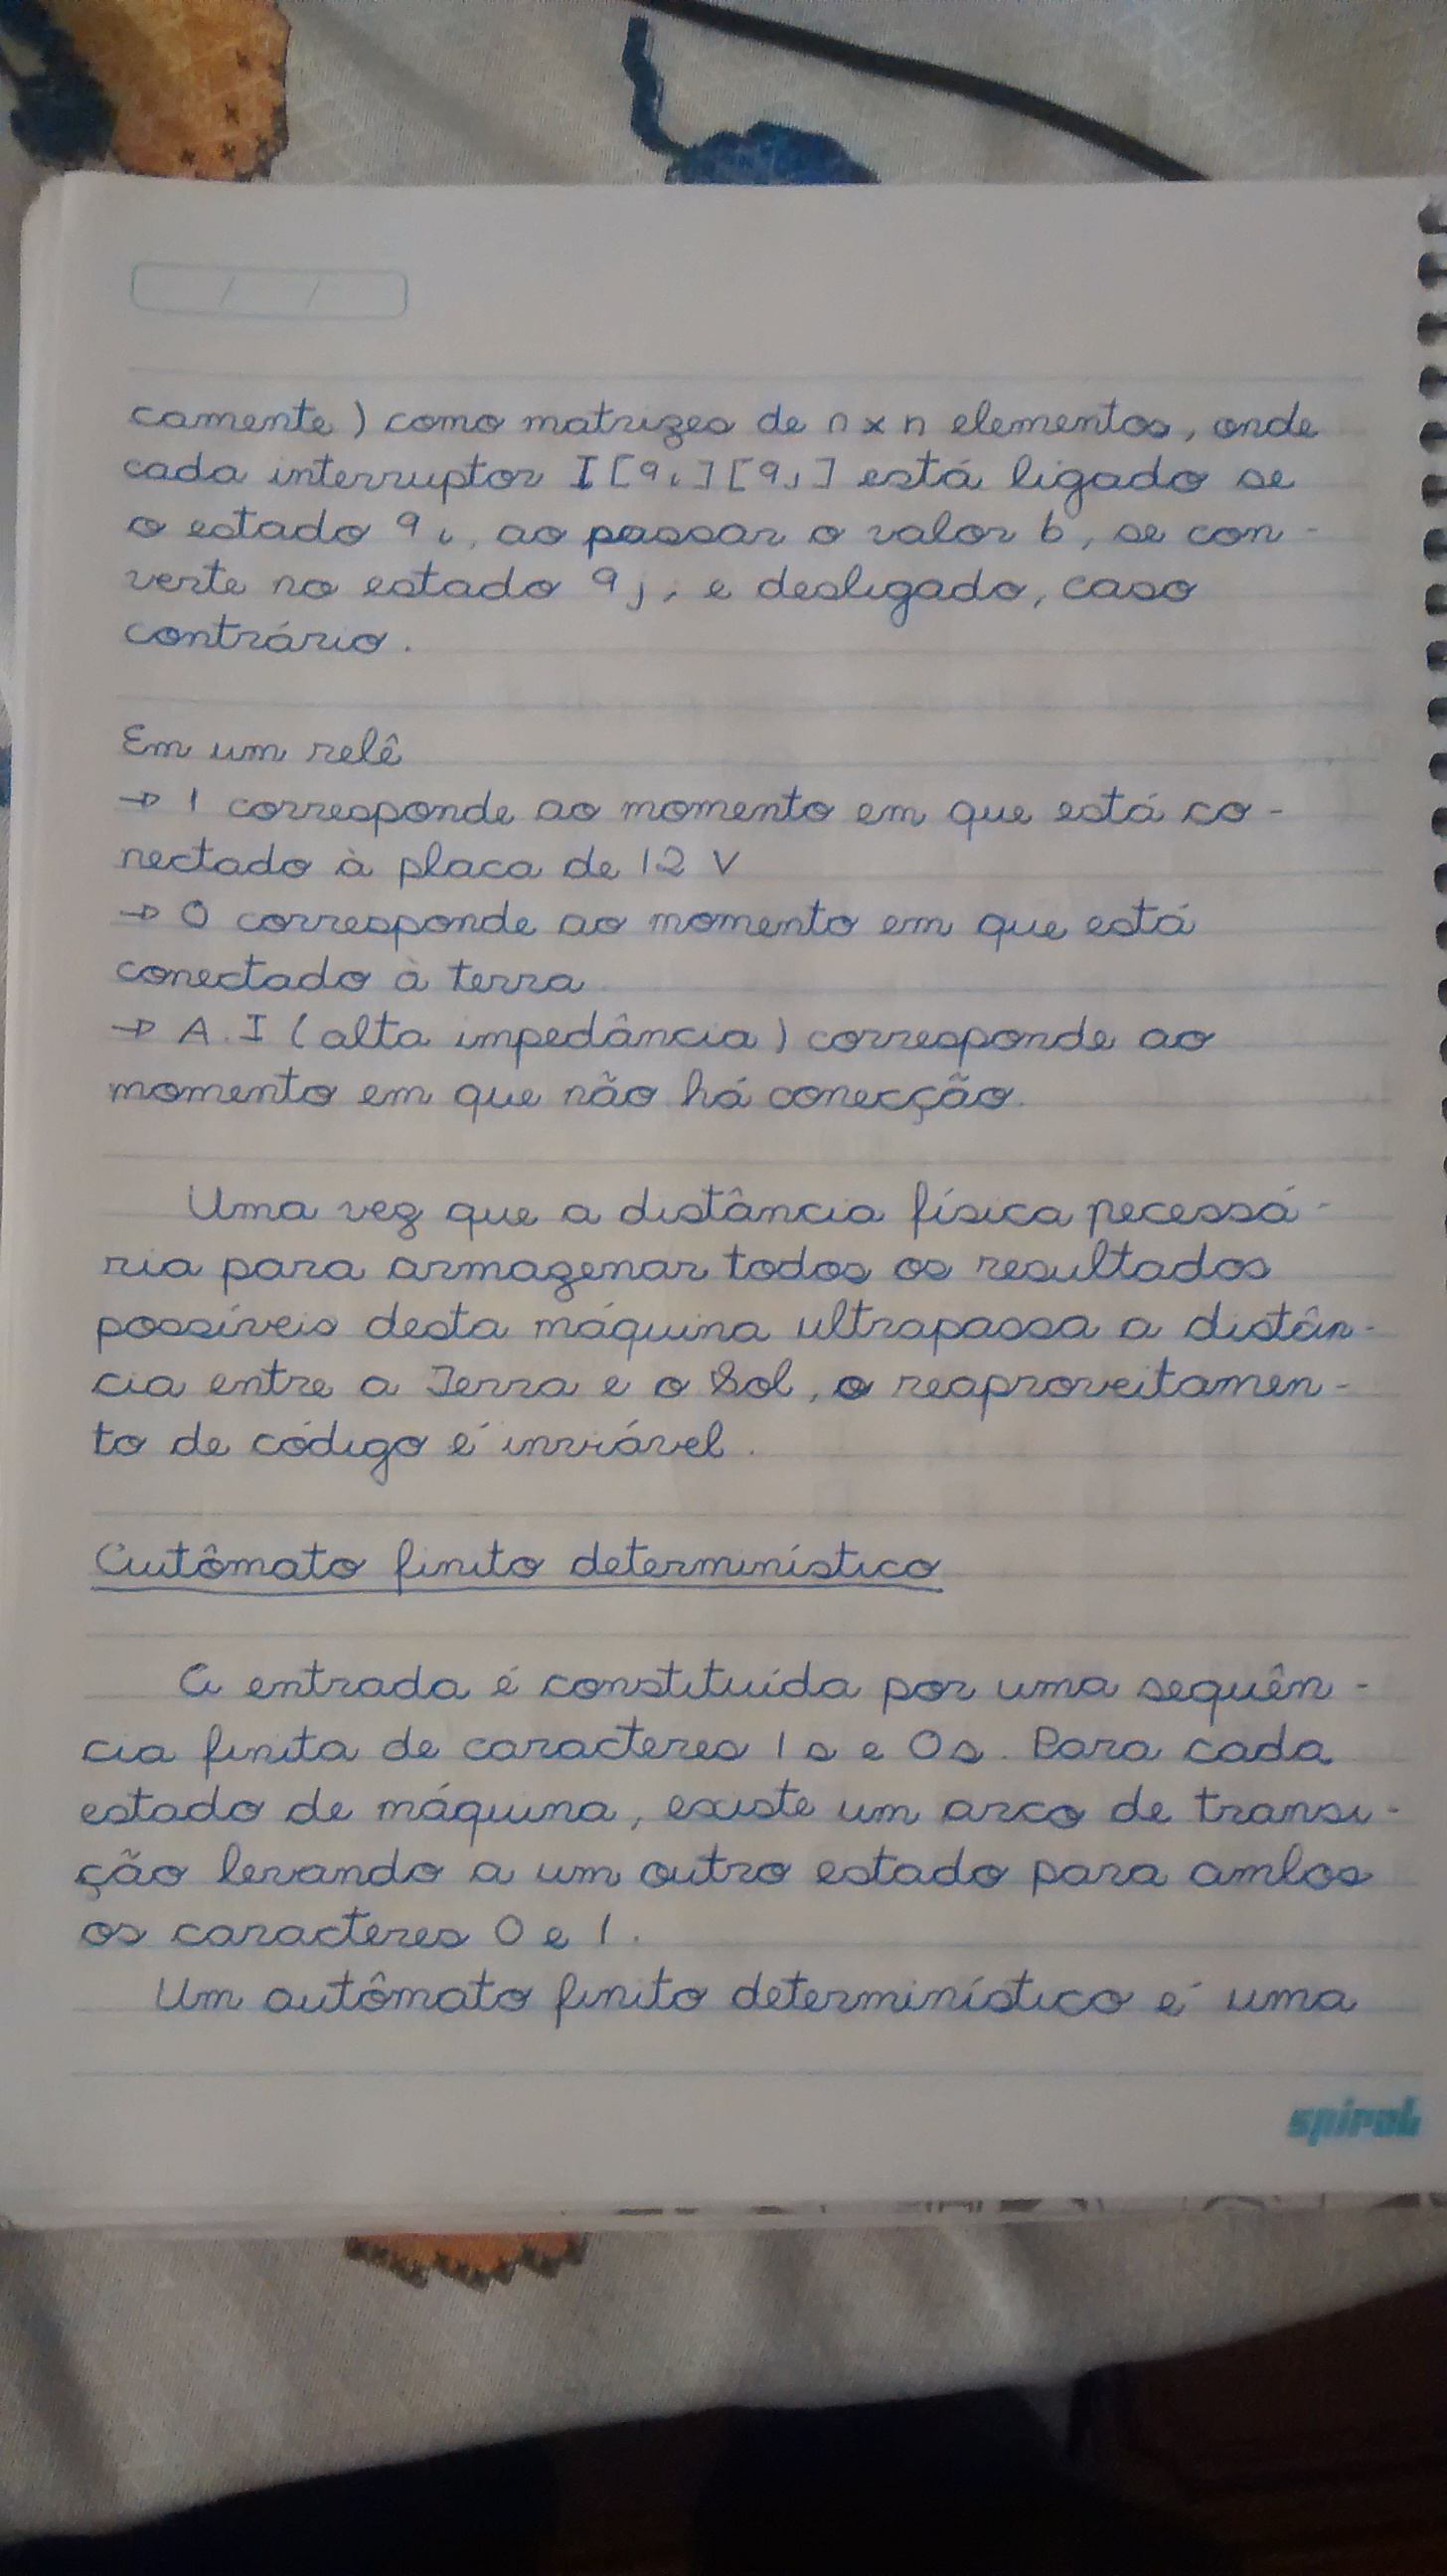 camente) como matrizes de n x n elementos, onde
cada interruptor I[qi][qj] está ligado se
o estado qi, ao passar o valor b, se con-
verte no estado qj, e desligado, caso
contrário.
Em um relê
→ 1 corresponde ao momento em que está co-
nectado à placa de 12 V
→ 0 corresponde ao momento em que está
conectado à terra
→ A.I (alta impedância) corresponde ao
momento em que não há conecção.
Uma vez que a distância física necessá-
ria para armazenar todos os resultados
possíveis desta máquina ultrapassa a distân-
cia entre a Terra e o Sol, o reaproveitamen-
to de código é inviável.
Autômato finito determinístico
A entrada é constituída por uma sequên-
cia finita de caracteres 1s e 0s. Para cada
estado de máquina, existe um arco de transi-
ção levando a um outro estado para ambos
os caracteres 0 e 1.
Um autômato finito determinístico é uma
spiral